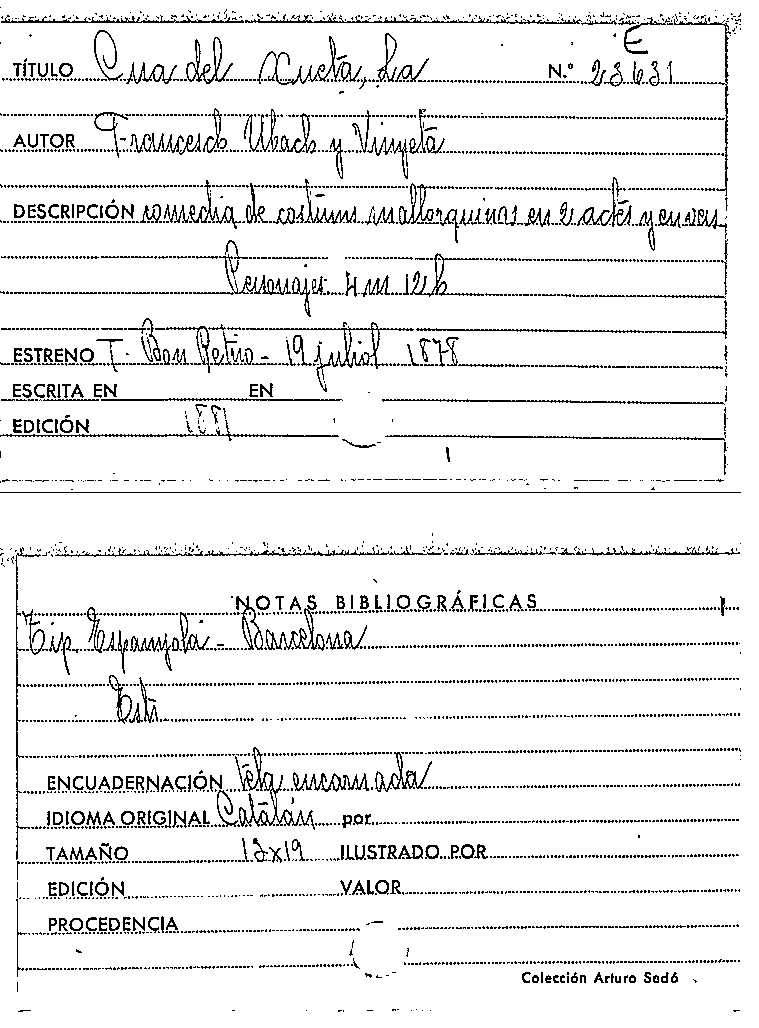 E
TÍTULO Cua del Xueta, La N.º 23631
AUTOR Francesch Ubach y Vinyeta
DESCRIPCIÓN comedia de costums mallorquinas en 2 actes y en vers
Personajes 4 m 12 h
ESTRENO T. Bon Retiro - 19 juliol 1878
ESCRITA EN EN
EDICIÓN 1881
NOTAS BIBLIOGRÁFICAS
Tip. Espanyola - Barcelona
ENCUADERNACIÓN tela encarnada
IDIOMA ORIGINAL Catalán por
TAMAÑO 12x19 ILUSTRADO POR
EDICIÓN VALOR
PROCEDENCIA
Colección Arturo Sedó